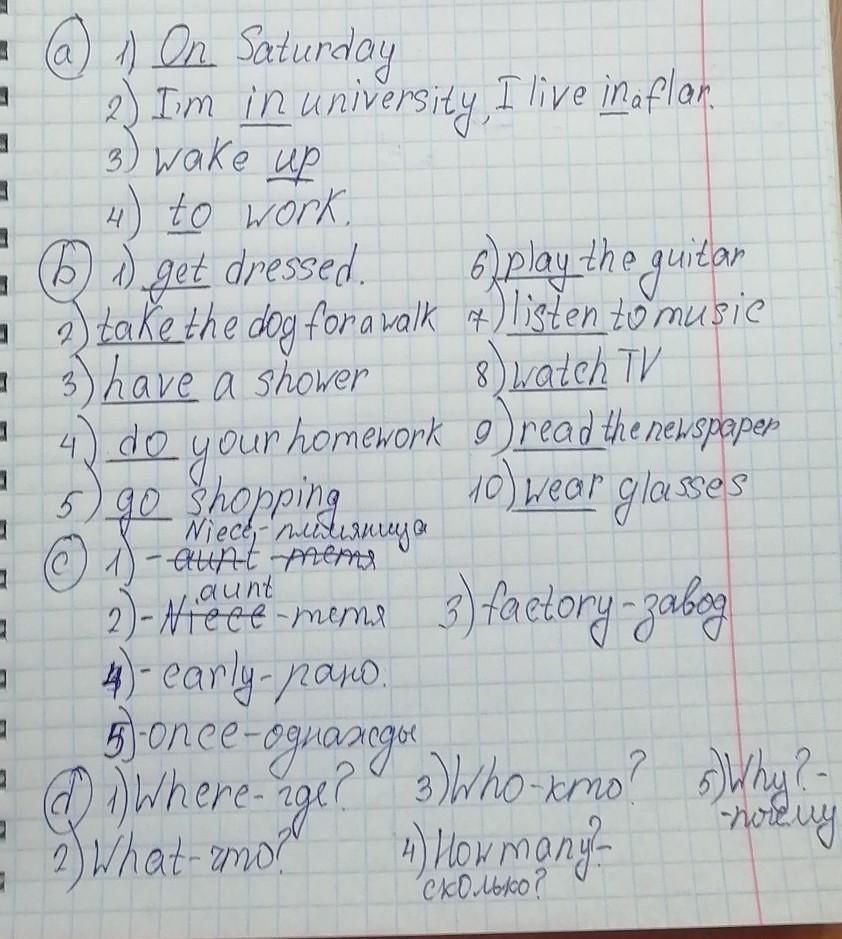 a) 1) On Saturday
2) I'm in university, I live in a flat.
3) wake up
4) to work.
b) 1) get dressed. 6) play the guitar
2) take the dog for a walk 7) listen to music
3) have a shower 8) watch TV
4) do your homework 9) read the newspaper
5) go shopping 10) wear glasses
Niece - племяница
c) 1) - aunt - тетя
aunt
2) - Niece - тетя 3) factory - завод
4) - early - рано.
5) - once - однажды
d) 1) Where - где? 3) Who - кто? 5) Why? -
- почему
2) What - что? 4) How many? -
сколько?